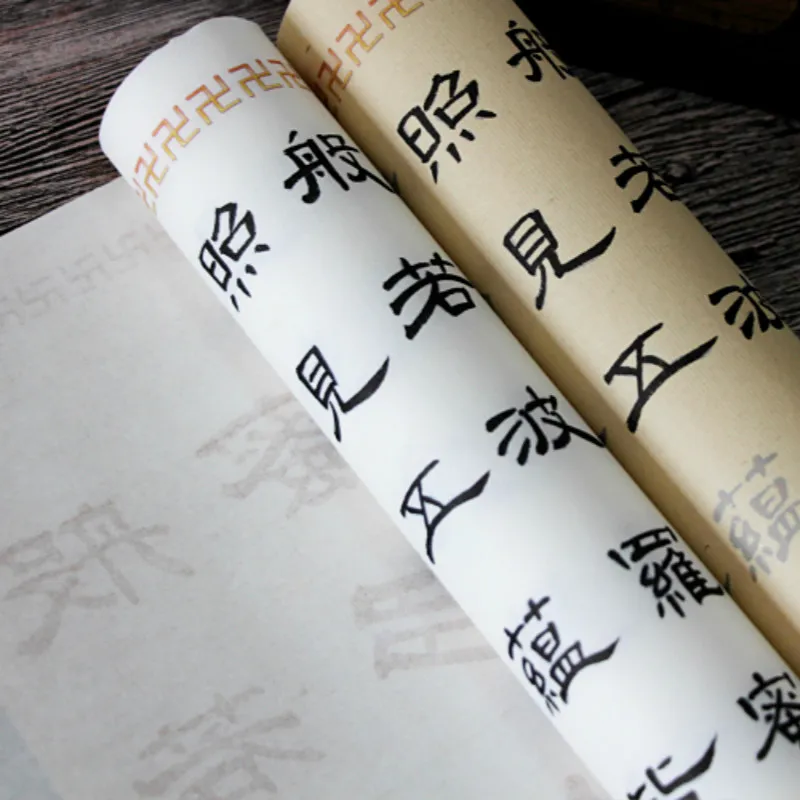 般若波
照見五蘊
般若波羅蜜
照見五蘊